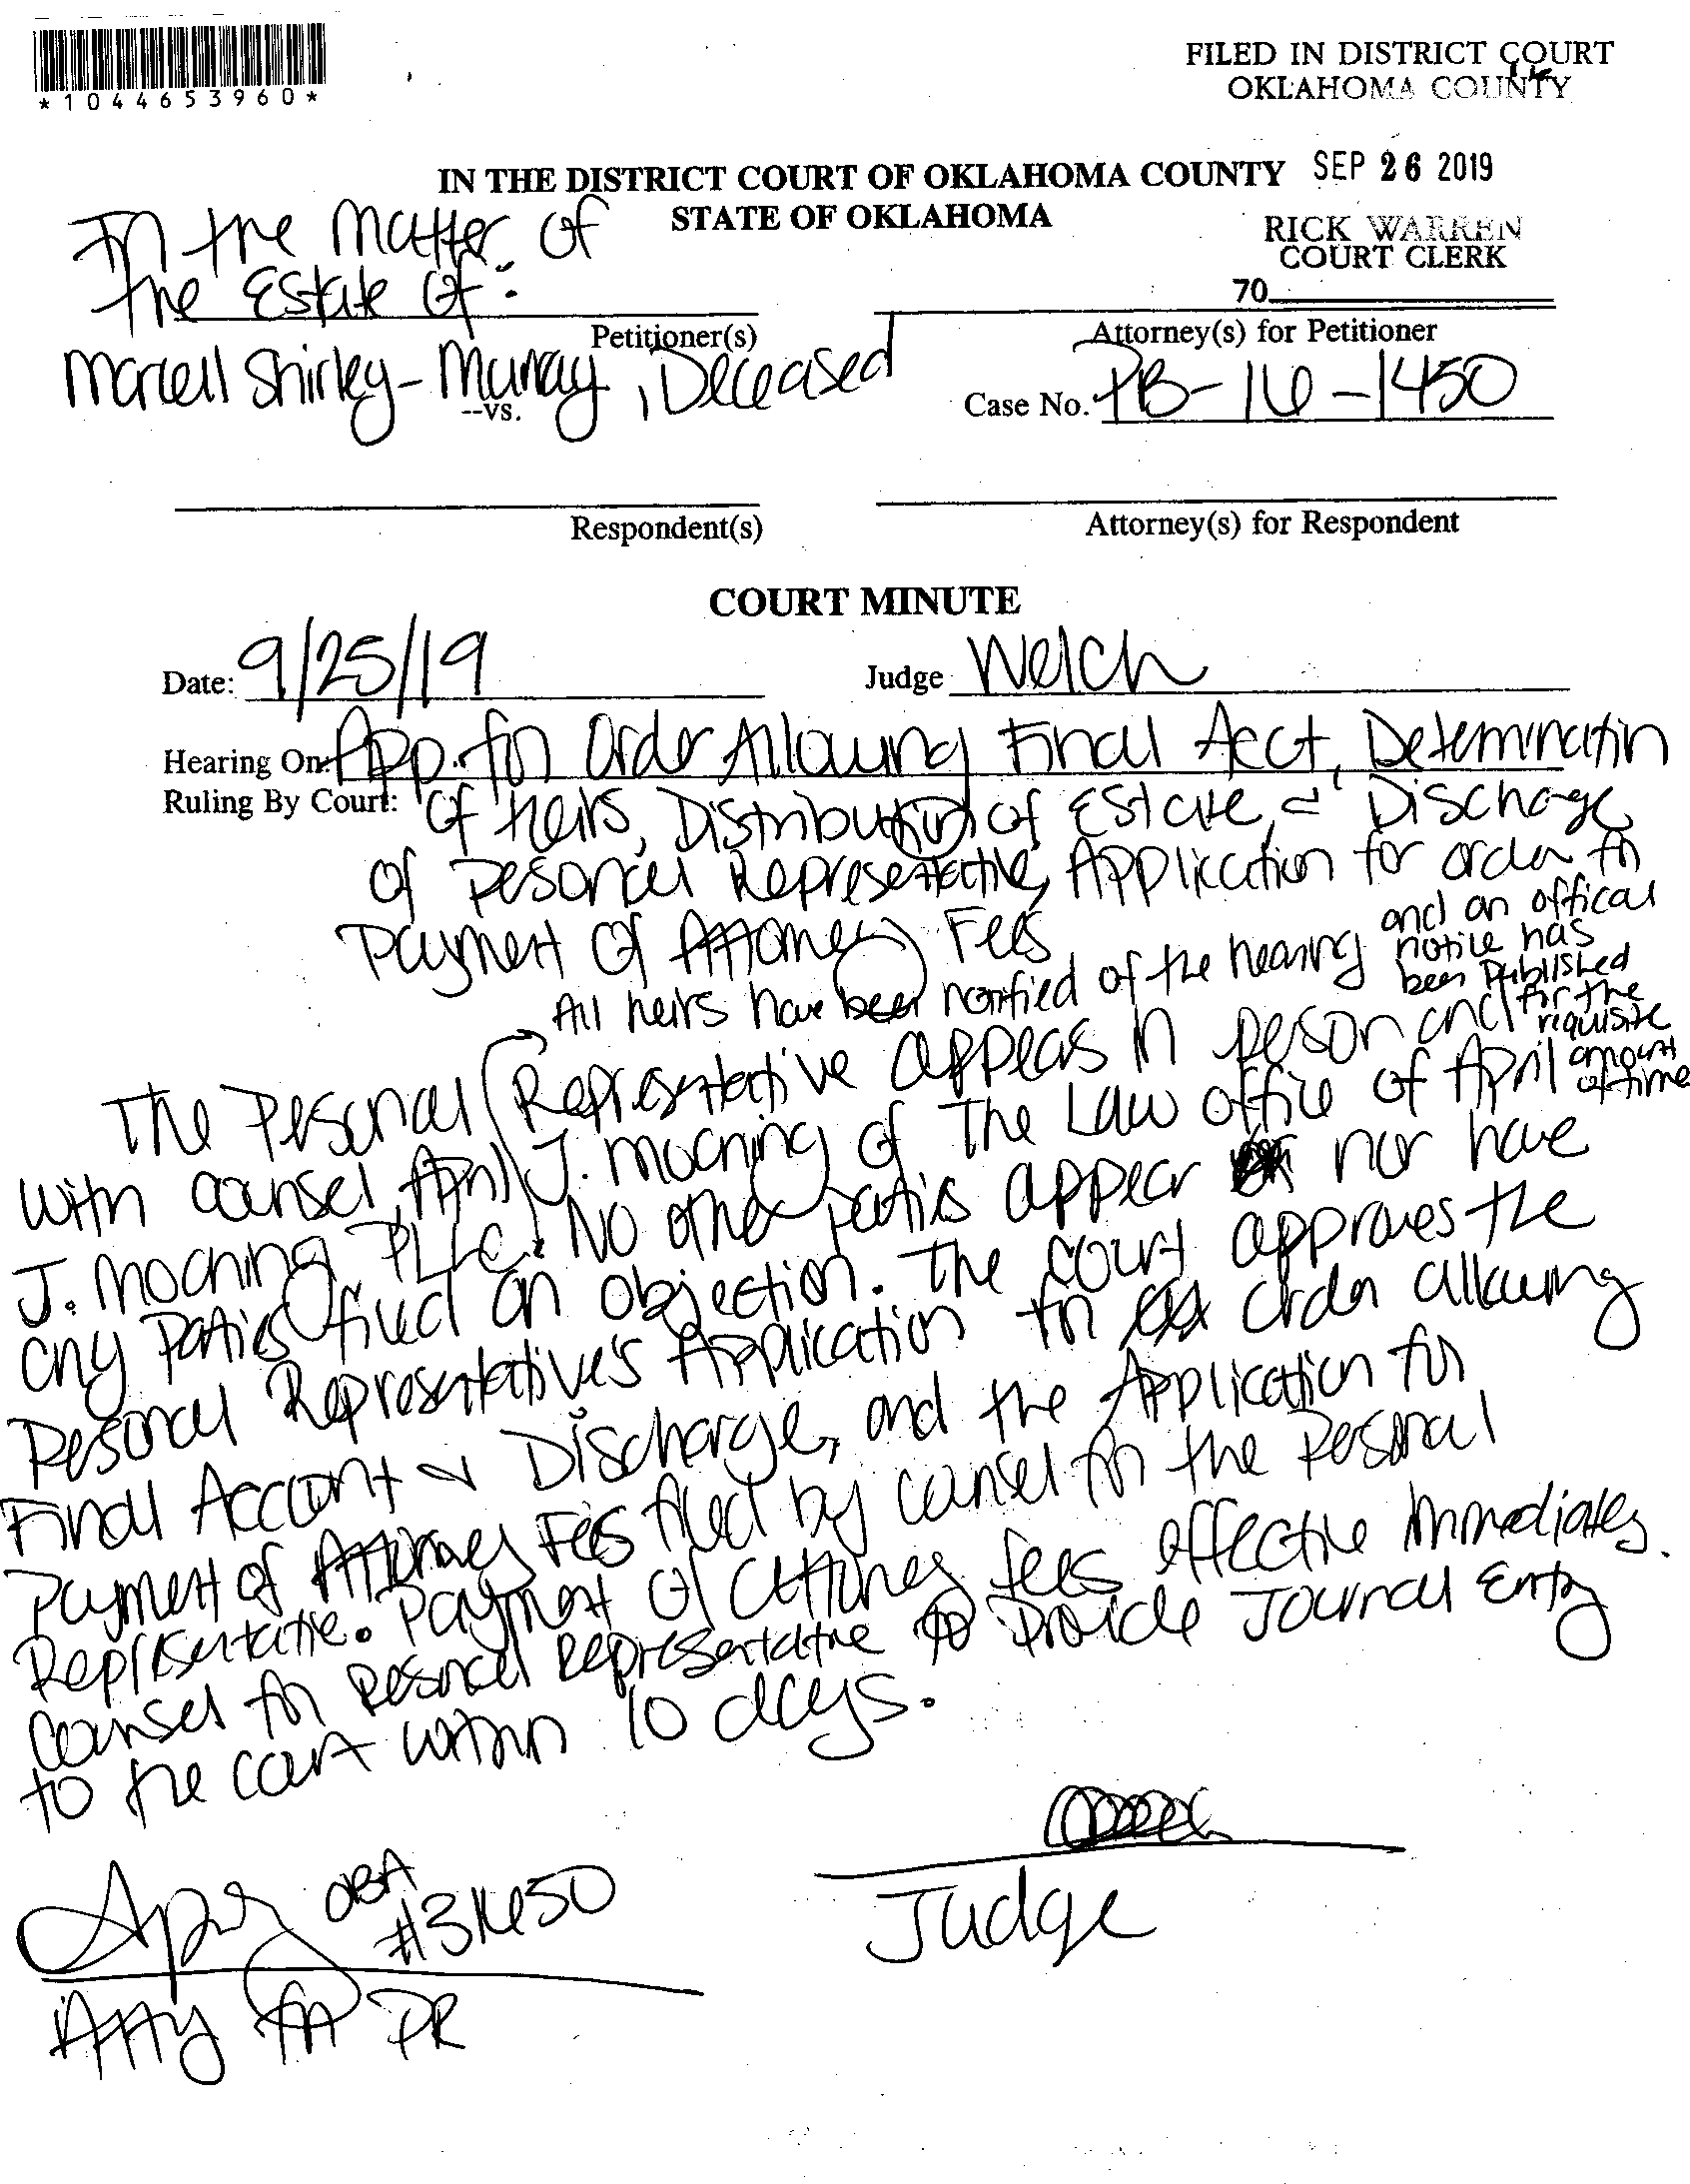 *1044653960*
FILED IN DISTRICT COURT
OKLAHOMA COUNTY
IN THE DISTRICT COURT OF OKLAHOMA COUNTY
SEP 26 2019
STATE OF OKLAHOMA
RICK WARREN
COURT CLERK
70
In the Matter of
the Estate of:
Petitioner(s)
Attorney(s) for Petitioner
Marcell Shirley-Murray, Deceased
--vs.
Case No. PB-16-1450
Respondent(s)
Attorney(s) for Respondent
COURT MINUTE
Date: 9/25/19
Judge Welch
Hearing On: App. for Order Allowing Final Acct, Determination
Ruling By Court: of heirs, Distribution of Estate, & Discharge
of Personal Representative, Application for order for
Payment of Attorney Fees
All heirs have been notified of the hearing
and an offical
notice has
been published
for the
requisite
amount
of time
The Personal Representative appears in person and
with counsel, April J. Moaning of The Law office of April
J. Moaning PLLC. No other parties appear nor have
any parties filed an objection. The court approves the
Personal Representative's Application for order allowing
Final Account & Discharge, and the Application for
Payment of Attorney Fees filed by counsel for the Personal
Representative. Payment of attorney fees effective immediately.
Counsel for Personal Representative to provide Journal Entry
to the court within 10 days.
OBA
#31650
Atty for PR
Judge